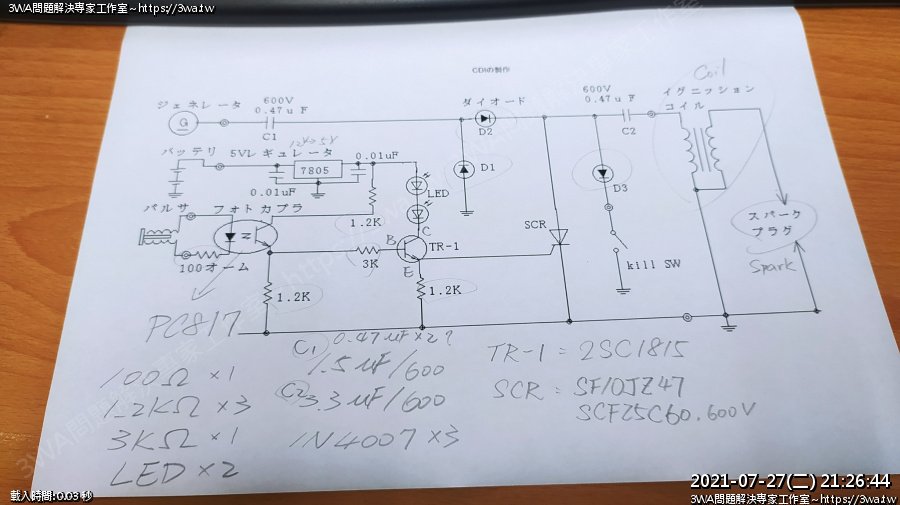 3WA問題解決專家工作室~https://3wa.tw
3WA問題解決專家工作室~https://3wa.tw
CDIの制作
Coil
ジェネレータ
600V
0.47uF
G
C1
ダイオード
D2
600V
0.47uF
C2
イグニッション
コイル
バッテリ
5Vレギュレータ
12V→5V
7805
0.01uF
0.01uF
LED
D1
D3
パルサ
フォトカプラ
1.2K
C
B
TR-1
E
SCR
スパーク
プラグ
Spark
100オーム
3K
kill SW
1.2K
1.2K
PC817
C1 0.47uF×2?
1.5uF/600
C2 3.3uF/600
1N4007×3
100Ω×1
1.2KΩ×3
3KΩ×1
LED×2
TR-1=2SC1815
SCR=SF10JZ47
SCF25C60.600V
載入時間:0.03 秒
2021-07-27(二) 21:26:44
3WA問題解決專家工作室~https://3wa.tw